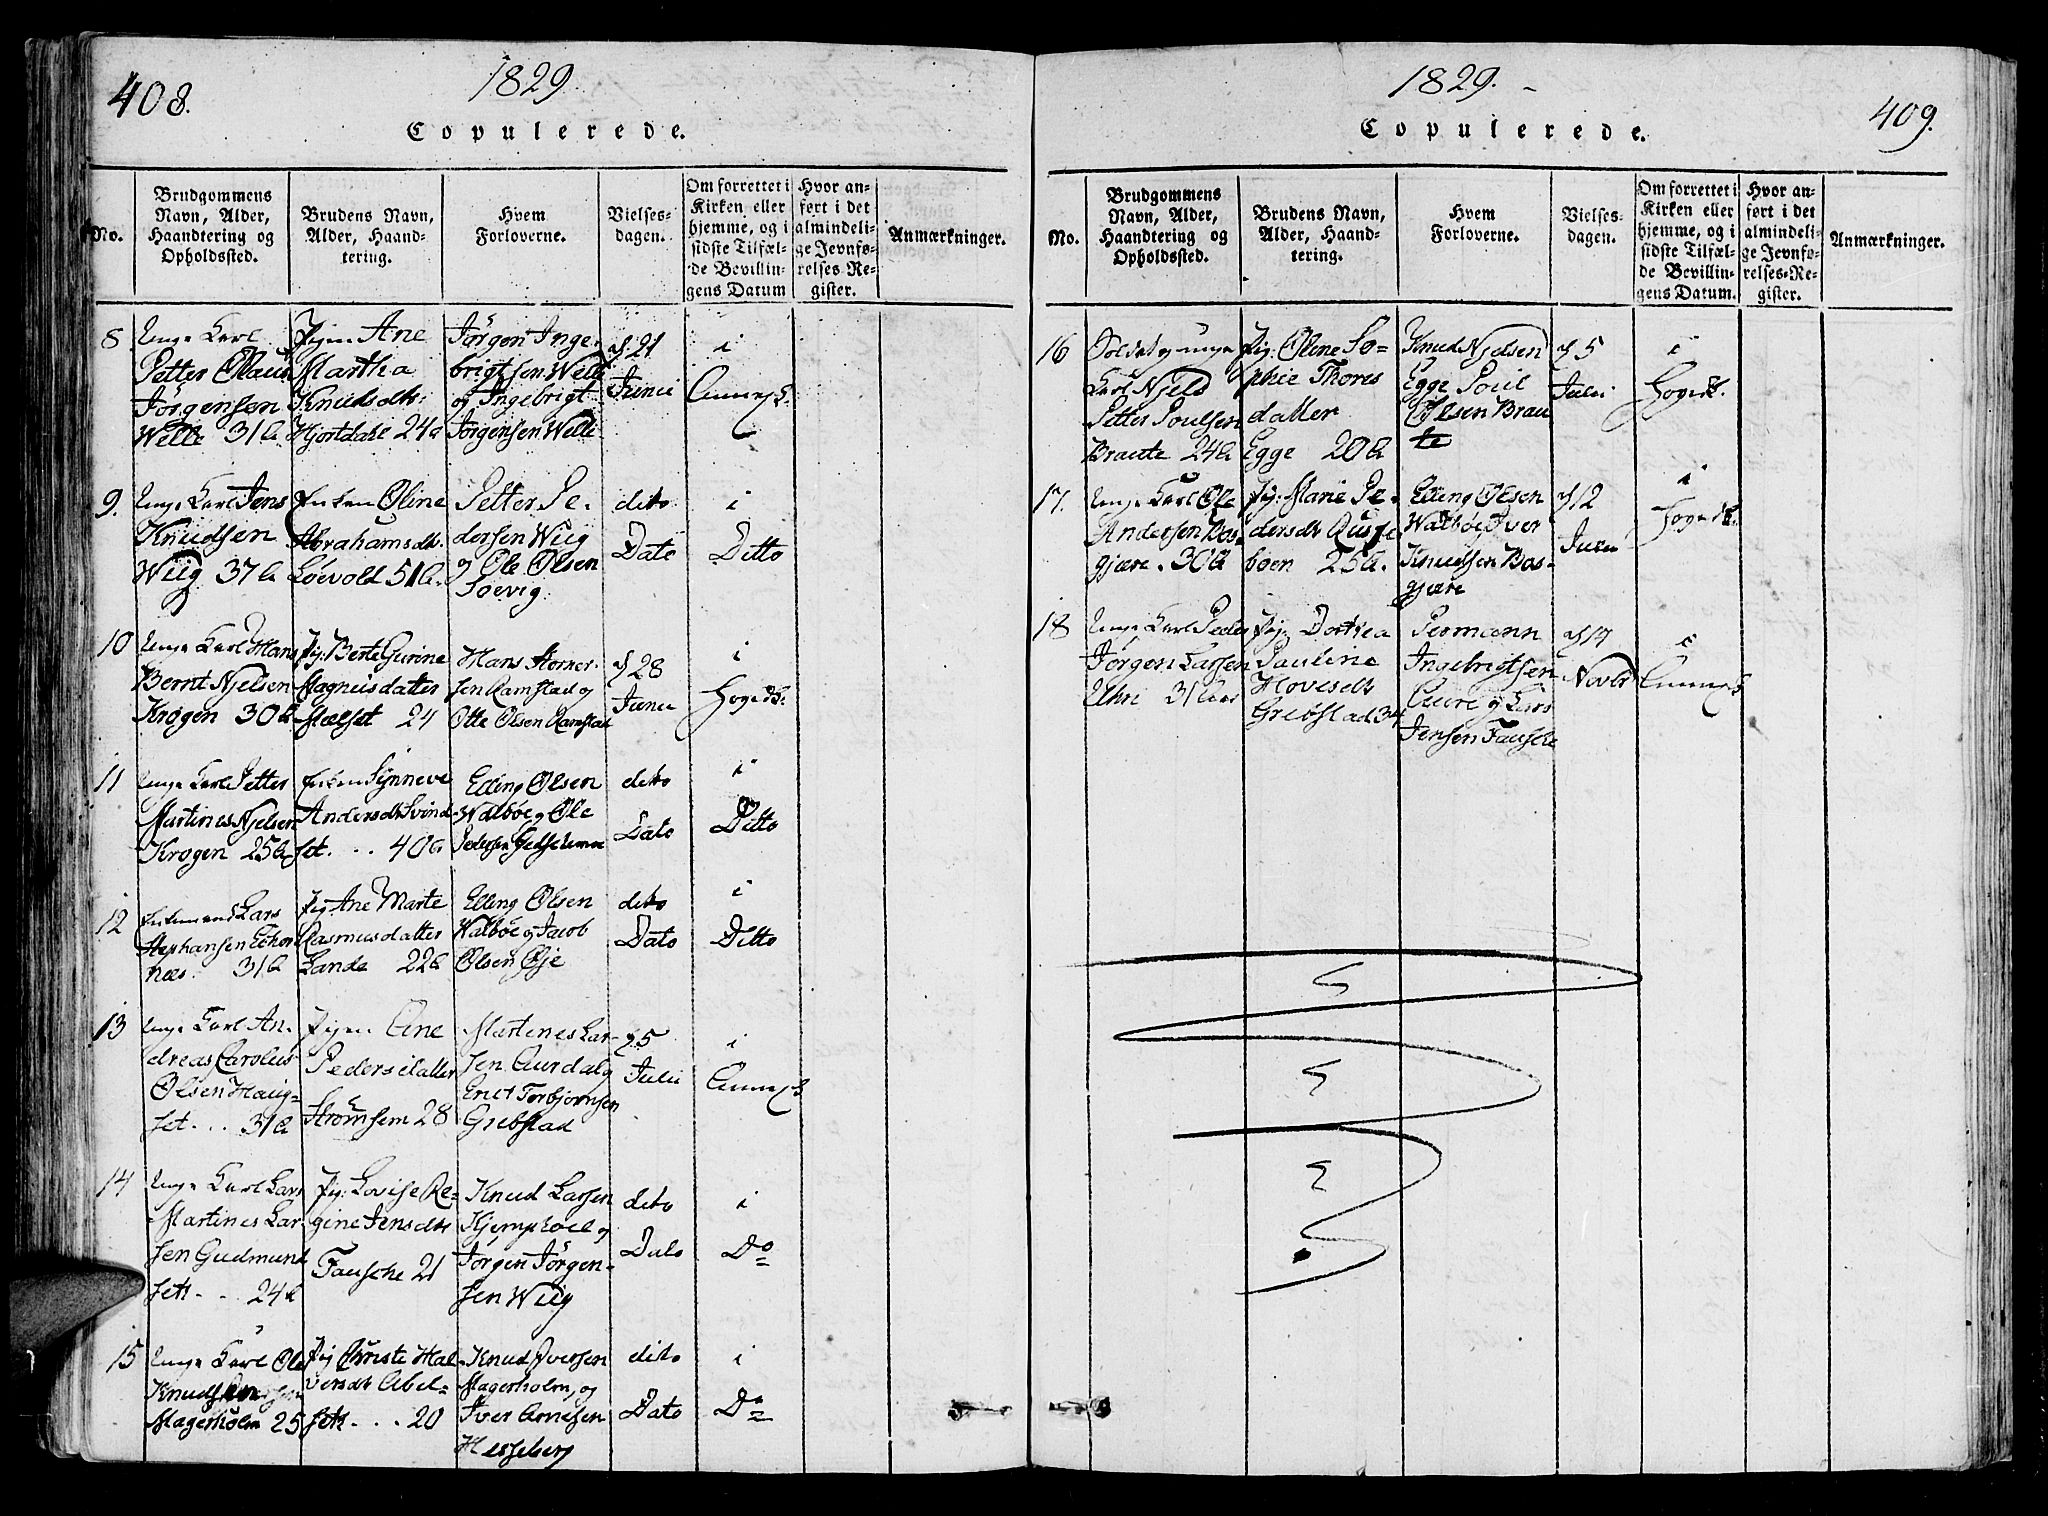 408.
1829
Copulerede.
No.
Brudgommens
Navn, Alder,
Haandtering og
Opholdssted.
Brudens Navn,
Alder, Haand-
tering.
Hvem
Forloverne.
Vielses-
dagen.
Om forrettet i
Kirken eller
hjemme, og i
sidste Tilfæl-
de Bevillin-
gens Datum
Hvor an-
ført i det
almindeli-
ge Jevnfø-
relses-Re-
gister.
Anmærkninger.
8
Unge Karl
Petter Olaus
Jørgensen
Welle 31 a
Pigen Ane
Martha
Knudsdtr
Hjortdahl 24 a
Jørgen Inge-
brigtsen Welle
og Ingebrigt
Jørgensen Welle
d 21
Junii
i
9.
Unge Karl Jens
Knudsen
Wiig 37 a
Enken Oline
Abrahamsdtr.
Løevold 51 a.
Petter Pe-
dersen Wiig
og Ole Olsen
Soevig
dito
Dato
i
Ditto
10
Unge Karl Hans
Bernt Njelsen
Krogen 30 a
Pig: Berte Gurine
Magnusdatter
Mælset 24
Hans
sen Ramstad og
Otte Olsen Ramstad
d 28
Junii
i
11
Unge Karl Petter
Martines Njelsen
Krogen 25 a
Enken Synneve
Andersdtr Svind-
set . . . 40 a
Elling Olsen
Walbøe og Ole
Pedersen
dito
Dato
i
Ditto
12
Enkemand Lars
Stephansen
næs. 31 a
Pig Ane Marte
Rasmusdatter
Lande 22 a
Elling Olsen
Walbøe og Jacob
Olsen Øje
dito
Dato
i
Ditto
13
Unge Karl An-
dreas Carolus
Olsen Haug-
set . . . 31 a
Pigen Ane
Pedersdatter
Strømsem 28
Martines Lar-
sen Aurdal og
Erict Torbjørnsen
Grebstad
d 5
Julii
i
14
Unge Karl Lars
Martines Lar-
sen Gudmund
set . . . 24 a
Pig: Lovise Re-
gine Jensdtr
Fausche 21
Knud Larsen
Kjemphoel og
Jørgen Jørgen-
sen Wiig
dito
Dato
i
Do
15
Unge Karl Ole
Knudsen
Magerholm 25
Pig Christe Hal-
versdtr Abel-
set . . . 20
Knud Iversen
Magerholm, og
Iver Arnesen
Hesseberg
dito
Dato
i
Do
1829.
409.
Copulerede.
No.
Brudgommens
Navn, Alder,
Haandtering og
Opholdssted.
Brudens Navn,
Alder, Haand-
tering.
Hvem
Forloverne.
Vielses-
dagen.
Om forrettet i
Kirken eller
hjemme, og i
sidste Tilfæl-
de Bevillin-
gens Datum.
Hvor an-
ført i det
almindeli-
ge Jevnfø-
relses-Re-
gister.
Anmærkninger.
16
Soldat og unge
Karl Njeld
Petter Poulsen
Braute 24 a
Pig: Oline So-
phie Thores
datter
Egge 20 a
Knud Njelsen
Egge Poul
Olsen Brau
te
d 5
Julii
i
17.
Unge Karl Ole
Andersen Bos-
gjære. 30 a
Pig: Marie Pe-
dersdtr
boen 25 a.
Elling Olsen
Walbøe Iver
Knudsen Bos-
gjære
d 12
Julii
i
18
Unge Karl Peder
Jørgen Larsen
Uhri 31 aar
Pig: Dorthea
Pauline
Hovesdtr
Grebstad 34
Permann
Ingebrigtsen
Aure og Lars
Jensen Fausche
d 17
Novbr
i